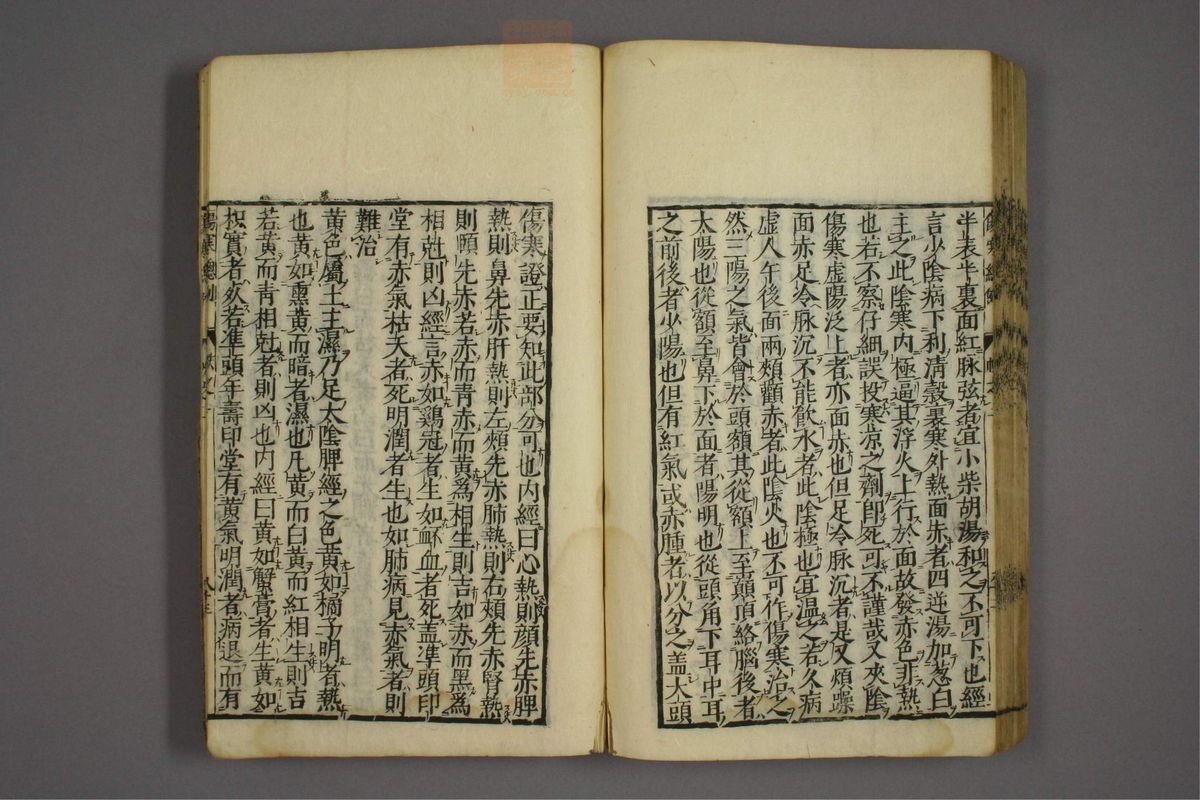 半表半裏面紅脉弦者宜小柴胡湯和之不可下也經
言少陰病下利淸穀裏寒外熱面赤者四逆湯加葱白
主之此陰寒內極逼其浮火上行於面故發赤色非熱
也若不察仔細誤投寒凉之劑卽死可不謹哉又夾陰
傷寒虛陽泛上者亦面赤也但足冷脉沉者是又煩躁
面赤足冷脉沉不能飲水者此陰極也宜温之若久病
虛人午後面兩頰顴赤者此陰火也不可作傷寒治之
然三陽之氣皆會於頭額其從額上至巔頂絡腦後者
太陽也從額至鼻下於面者陽明也從頭角下耳中耳
之前後者少陽也但有紅氣或赤腫者以分之盖大頭
傷寒證正要知此部分可也內經曰心熱則顔先赤脾
熱則鼻先赤肝熱則左頰先赤肺熱則右頰先赤腎熱
則頤先赤若赤而靑赤而黃爲相生則吉如赤而黑爲
相尅則凶經言赤如鷄冠者生如衃血者死盖準頭印
堂有赤氣枯夭者死明潤者生也如肺病見赤氣者則
難治
黃色屬土主濕乃足太陰脾經之色黃如橘子明者熱
也黃如熏黃而暗者濕也凡黃而白黃而紅相生則吉
若黃而靑相尅者則凶也內經曰黃如蟹膏者生黃如
枳實者死若準頭年壽印堂有黃氣明潤者病退而有
傷寒總例